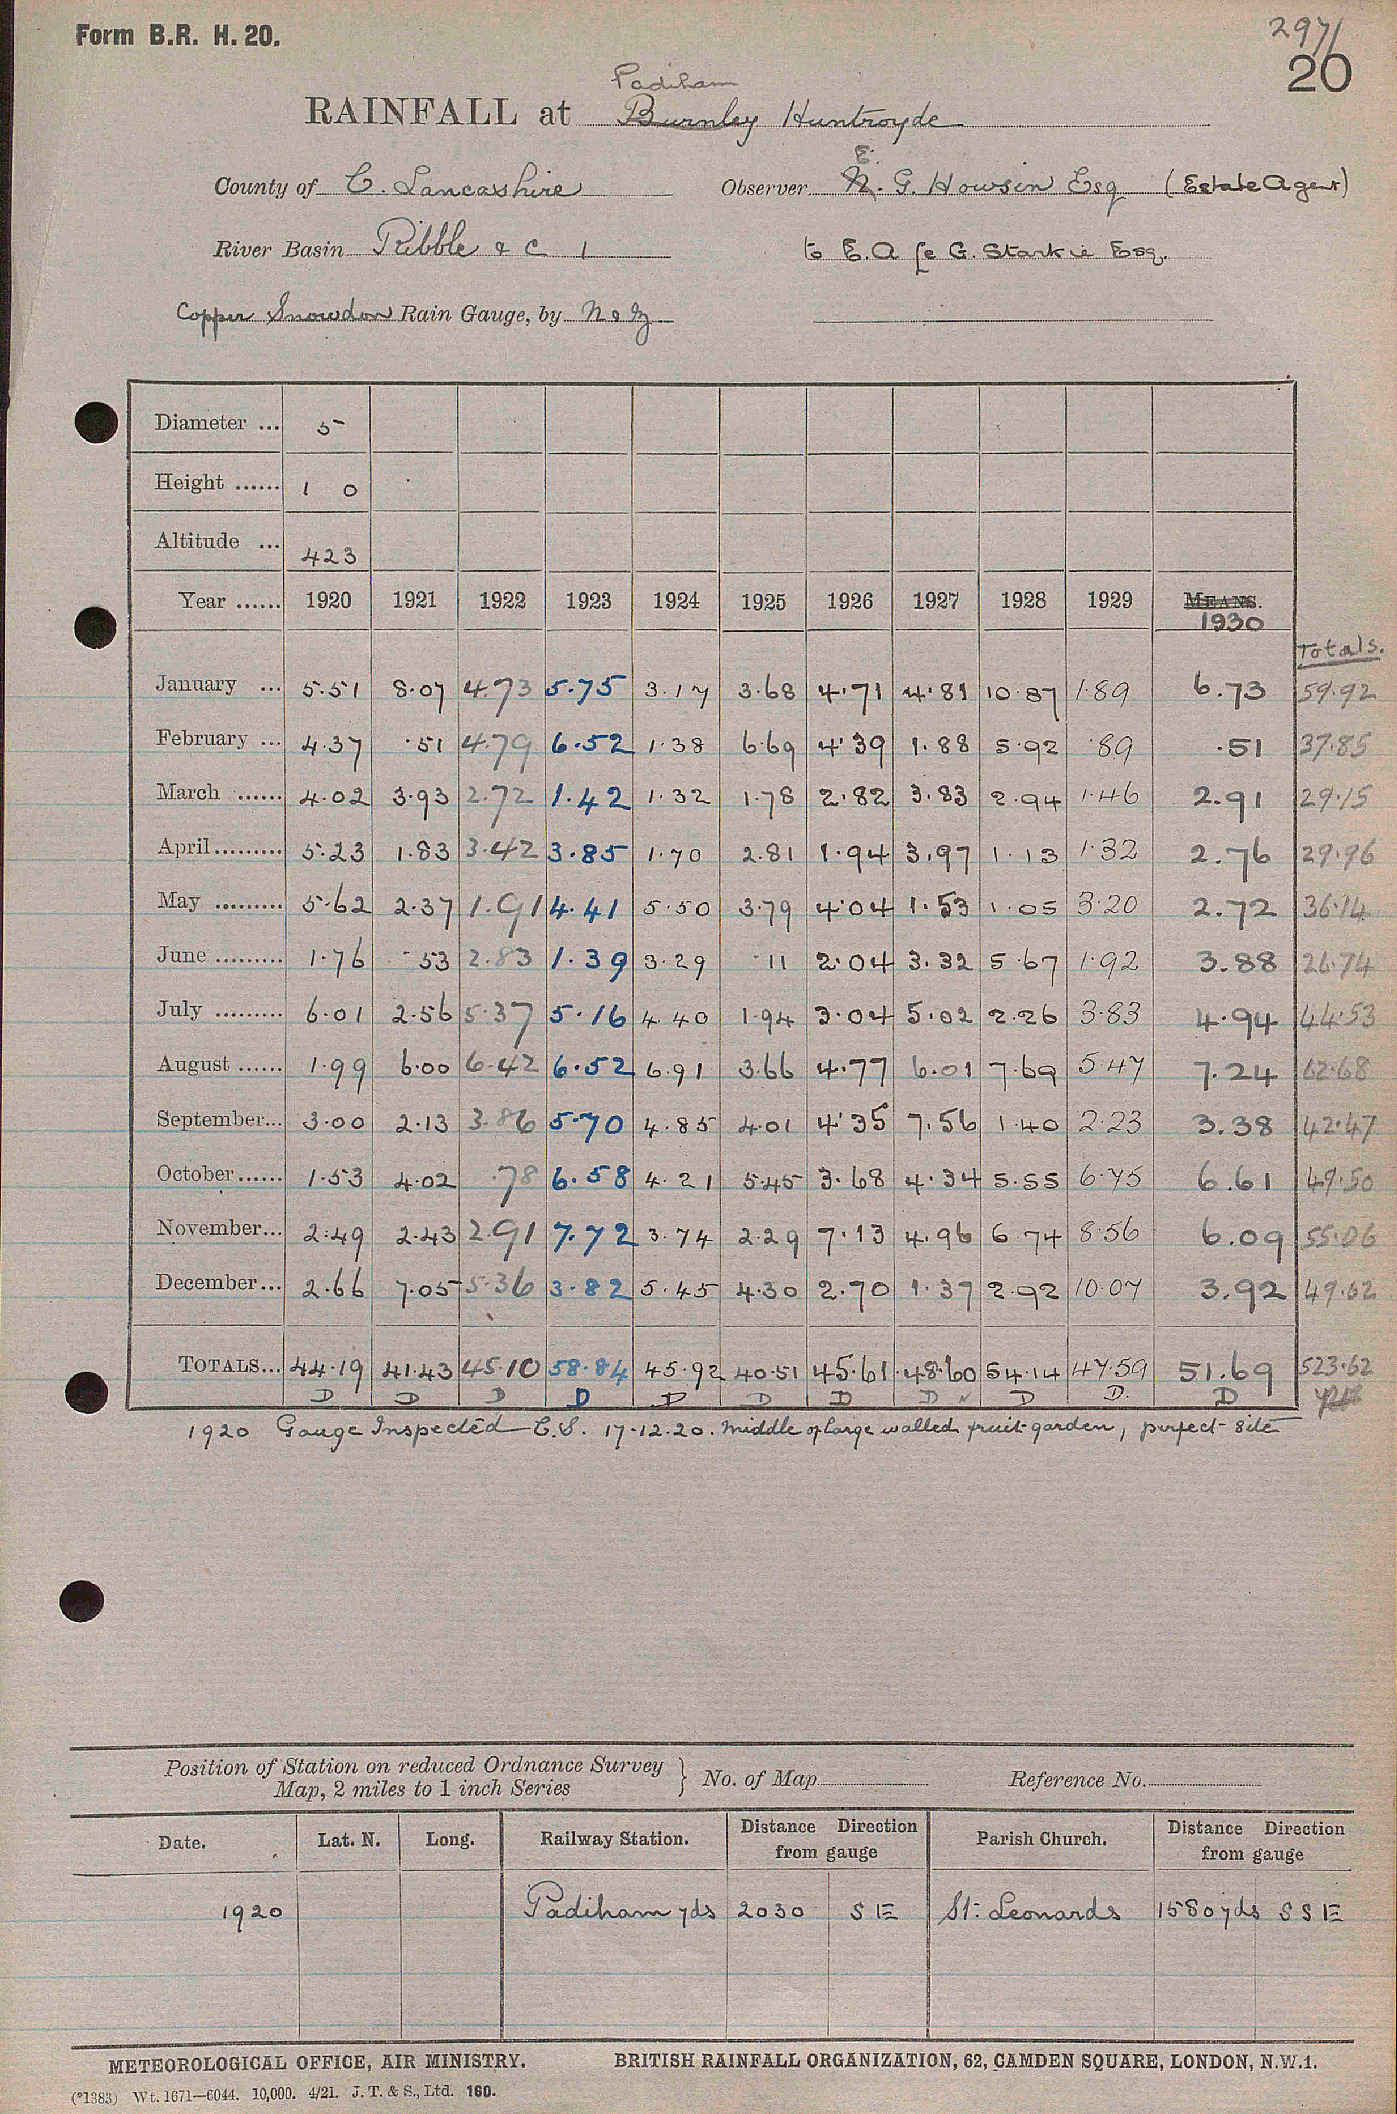 Form B.R. H. 20.
297/
20
Padiham
RAINFALL at Burnley Huntroyde
E.
County of C. Lancashire Observer N. G. Howsin Esq (Estate Agent)
River Basin Ribble & C 1 to E. A Le G. Starkie Esq.
Copper Snowdon Rain Gauge, by N & Z
Diameter ... 5
Height ...... 1 0
Altitude ... 423
Year ...... 1920 1921 1922 1923 1924 1925 1926 1927 1928 1929 MEANS.
1930
Totals.
January ... 5.51 8.07 4.73 5.75 3.17 3.68 4.71 4.81 10.87 1.89 6.73 59.92
February ... 4.37 .51 4.79 6.52 1.38 6.69 4.39 1.88 5.92 .89 .51 37.85
March ...... 4.02 3.93 2.72 1.42 1.32 1.78 2.82 3.83 2.94 1.46 2.91 29.15
April......... 5.23 1.83 3.42 3.85 1.70 2.81 1.94 3.97 1.13 1.32 2.76 29.96
May ......... 5.62 2.37 1.91 4.41 5.50 3.79 4.04 1.53 1.05 3.20 2.72 36.14
June ......... 1.76 .53 2.83 1.39 3.29 .11 2.04 3.32 5.67 1.92 3.88 26.74
July ......... 6.01 2.56 5.37 5.16 4.40 1.94 3.04 5.02 2.26 3.83 4.94 44.53
August ...... 1.99 6.00 6.42 6.52 6.91 3.66 4.77 6.01 7.69 5.47 7.24 62.68
September... 3.00 2.13 3.86 5.70 4.85 4.01 4.35 7.56 1.40 2.23 3.38 42.47
October...... 1.53 4.02 .78 6.58 4.21 5.45 3.68 4.34 5.55 6.75 6.61 49.50
November... 2.49 2.43 2.91 7.72 3.74 2.29 7.13 4.96 6.74 8.56 6.09 55.06
December... 2.66 7.05 5.36 3.82 5.45 4.30 2.70 1.37 2.92 10.07 3.92 49.62
TOTALS... 44.19 41.43 45.10 58.84 45.92 40.51 45.61 48.60 54.14 47.59 51.69 523.62
D D D D D D D D D D. D
1920 Gauge Inspected C.S. 17.12.20. Middle of large walled fruit garden, perfect site
Position of Station on reduced Ordnance Survey
Map, 2 miles to 1 inch Series } No. of Map Reference No.
Date. Lat. N. Long. Railway Station. Distance from gauge Direction Parish Church. Distance from gauge Direction
1920 Padiham yds 2030 S E St: Leonards 1580 yds S S E
METEOROLOGICAL OFFICE, AIR MINISTRY. BRITISH RAINFALL ORGANIZATION, 62, CAMDEN SQUARE, LONDON, N.W.1.
(*1383) Wt. 1671—6044. 10,000. 4/21. J. T. & S., Ltd. 160.